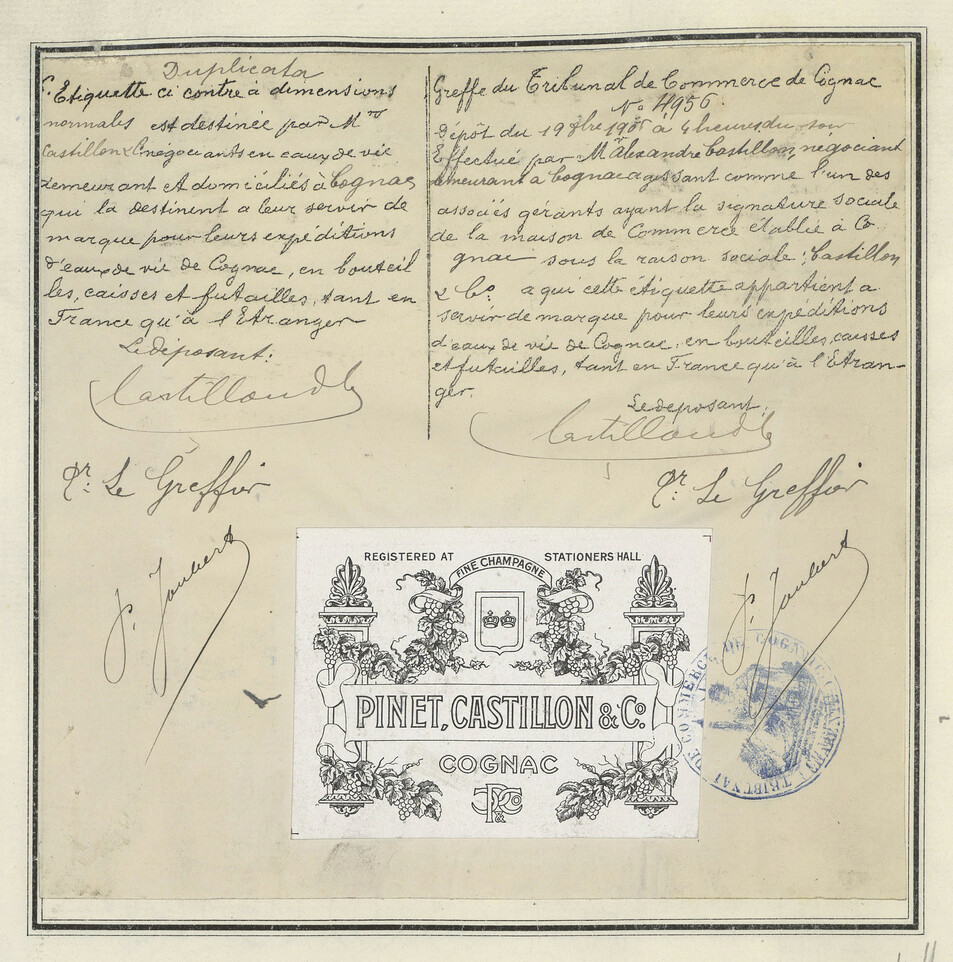 Duplicata
L'Etiquette ci contre à dimensions
normales est destinée par Mrs
Castillon & C négociants en eaux de vie
demeurant et domiciliés à Cognac
qui la destinent a leur servir de
marque pour leurs expéditions
d'eaux de vie de Cognac, en bouteil
les, caisses et futailles, tant en
France qu'à l'Etranger
Le déposant:
Castillon & Co
Pr: Le Greffier
P. Joubert
Greffe du Tribunal de Commerce de Cognac
No 4956.
Dépôt du 19 9bre 1906 à 4 heures du soir
Effectué par M Alexandre Castillon, négociant
demeurant à Cognac agissant comme l'un des
associés gérants ayant la signature sociale
de la maison de Commerce établie à Co
gnac sous la raison sociale: Castillon
& Co. a qui cette étiquette appartient a
servir de marque pour leurs expéditions
d'eaux de vie de Cognac, en bouteilles, caisses
et futailles, tant en France qu'à l'Etran-
ger.
Le déposant:
Castillon & Co
Pr: Le Greffier
P. Joubert
REGISTERED AT STATIONERS HALL
FINE CHAMPAGNE
PINET, CASTILLON & Co.
COGNAC
TRIBUNAL DE COMMERCE DE COGNAC